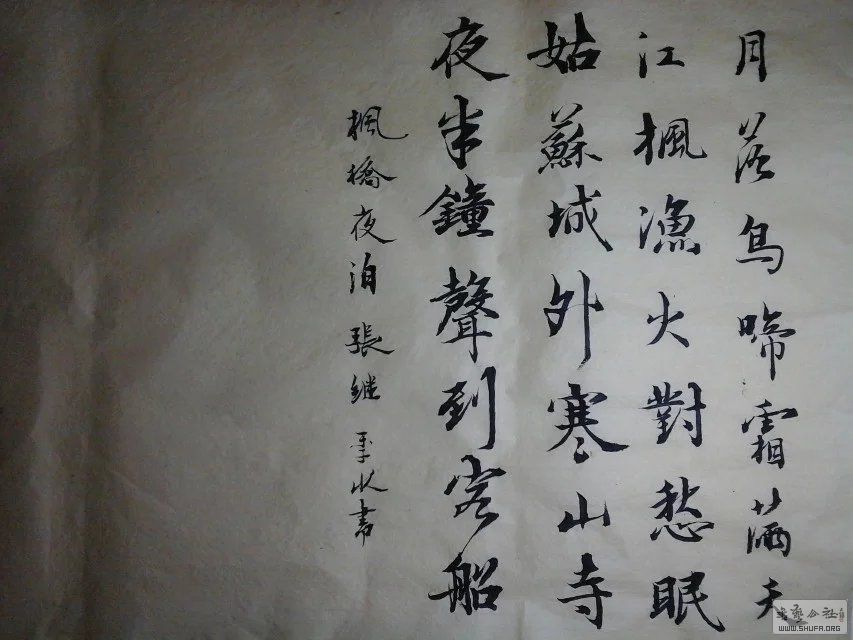 月落烏啼霜滿天
江楓漁火對愁眠
姑蘇城外寒山寺
夜半鐘聲到客船
楓橋夜泊 張継 書
WWW.SHUFA.ORG